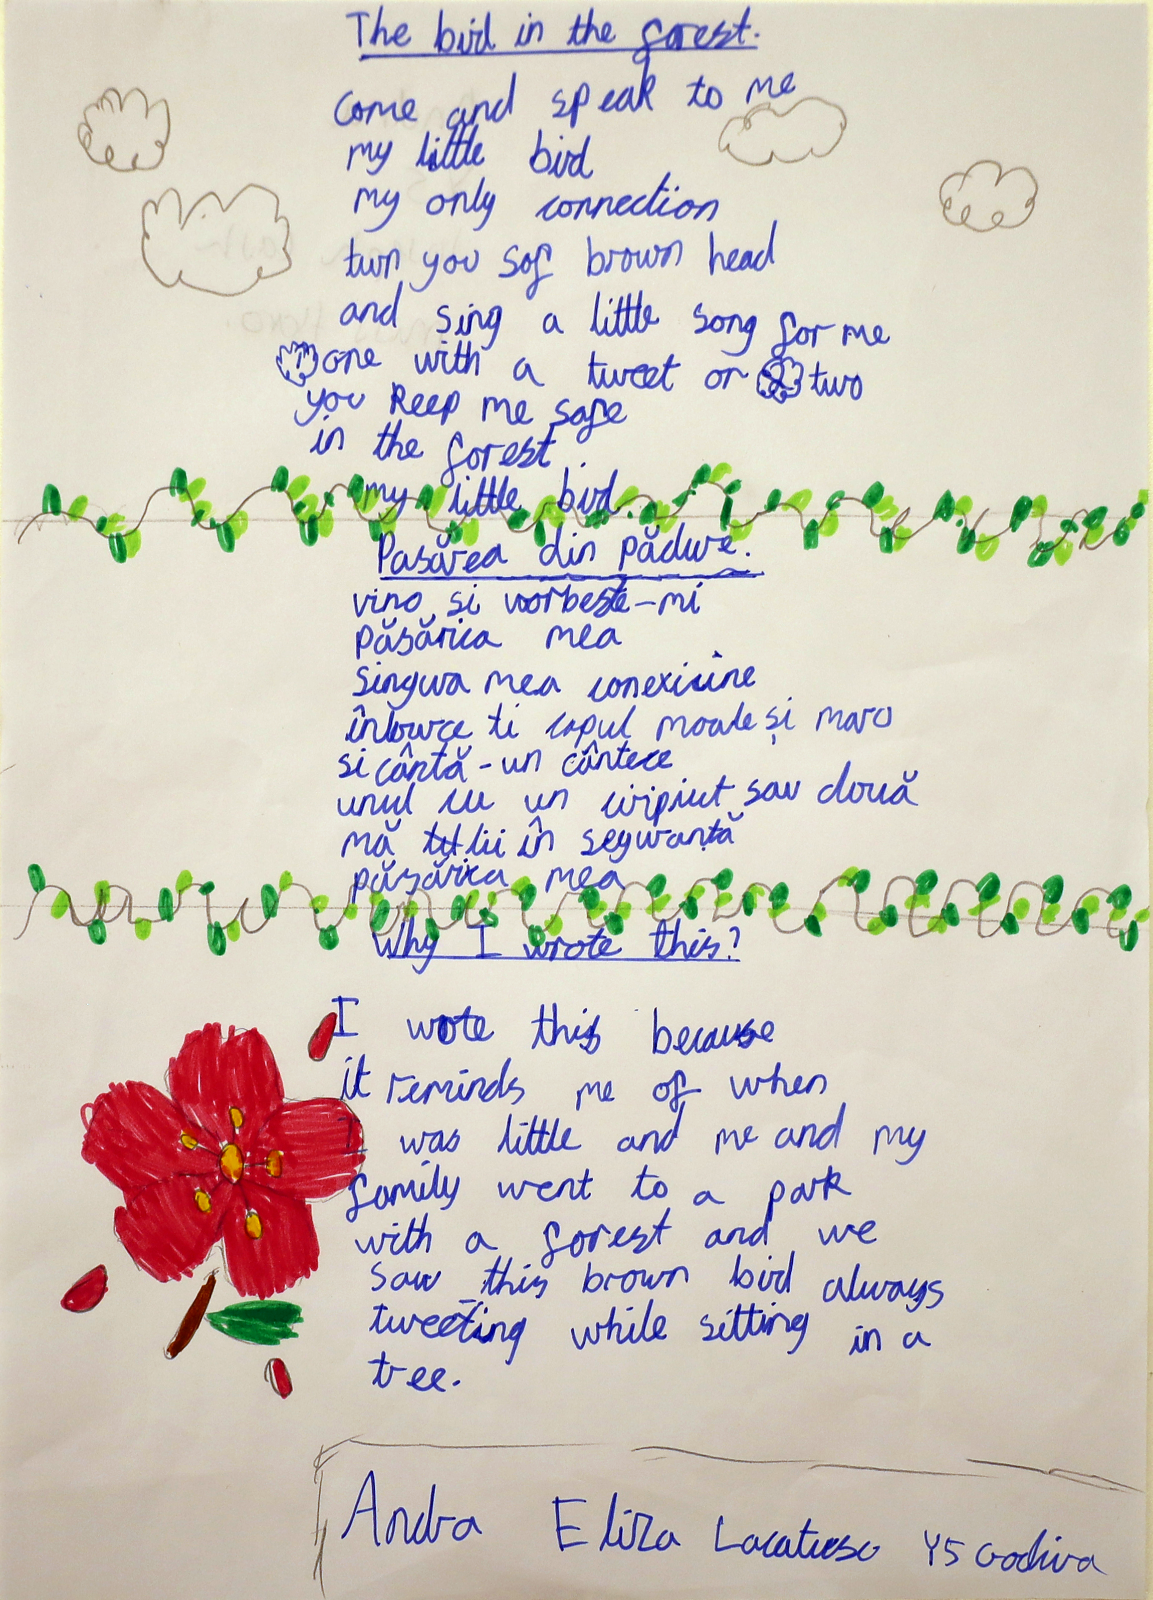 The bird in the forest.
come and speak to me
my little bird
my only connection
turn you sof brown head
and sing a little song for me
one with a tweet or two
you keep me safe
in the forest
my little bird.
Pasărea din pădure.
vino si vorbeste-mi
păsărica mea
singura mea conexiune
întoarce ti capul moale și maro
si cântă-un cântece
unul cu un ciripiut sau două
mă tii în seguranță
păsărica mea
Why I wrote this?
I wote this because
it reminds me of when
I was little and me and my
family went to a park
with a forest and we
saw this brown bird always
tweeting while sitting in a
tree.
Andra Eliza Lacatusu Y5 Godiva